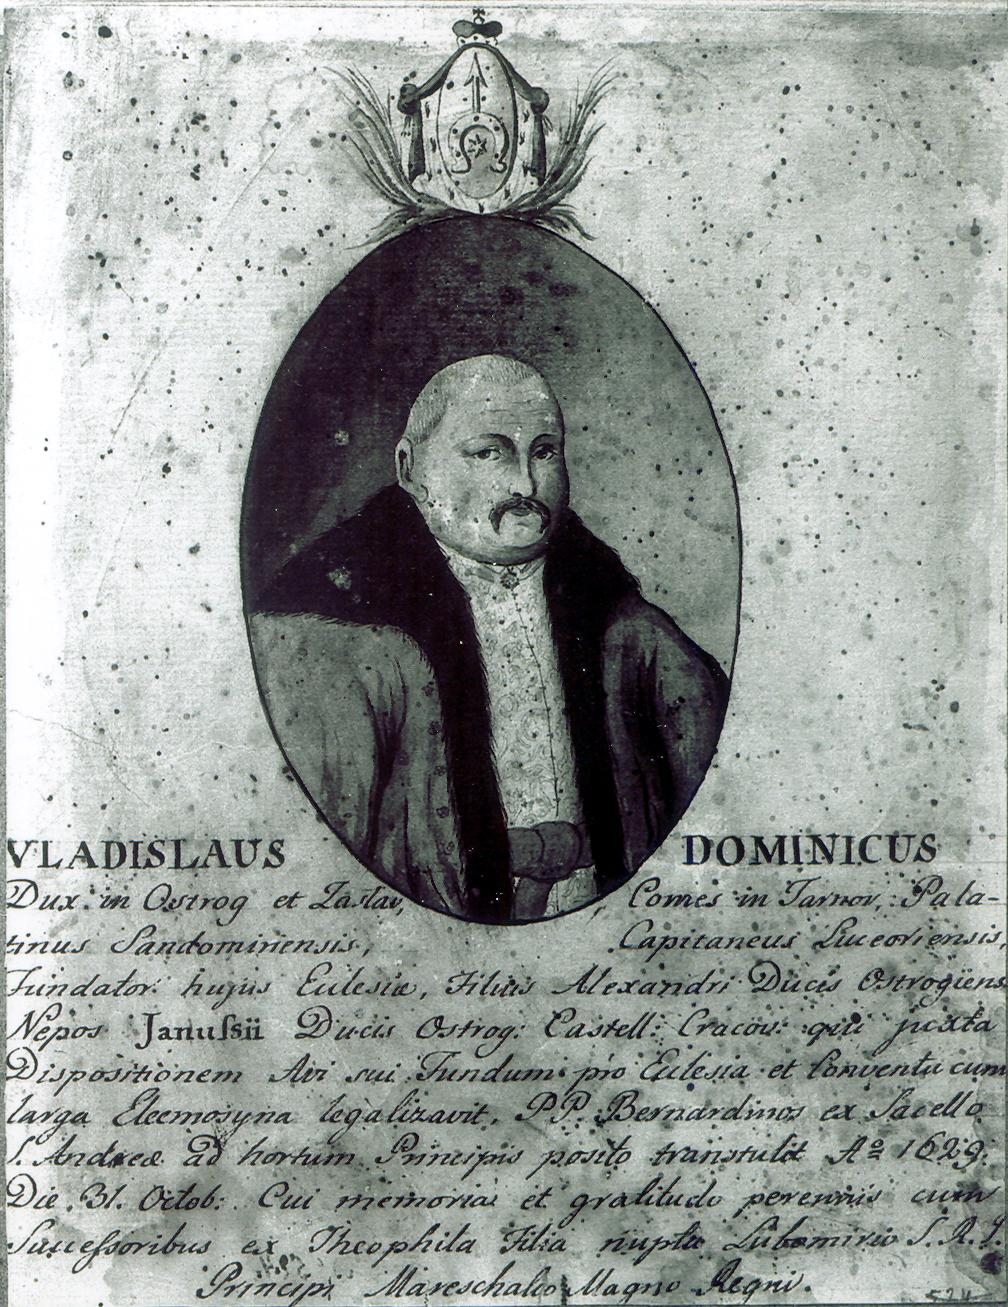 VLADISLAUS DOMINICUS
Dux in Ostrog et Zaslav, Comes in Tarnov, Pala-
tinus Sandomiriensis, Capitaneus Luceoriensis,
Fundator hujus Eclesiæ, Filius Alexandri Ducis Ostrogiens
Nepos Janufsii Ducis Ostrog: Castell: Cracov: qui juxta
Dispositionem Avi sui Fundum pro Eclesia et Conventu cum
larga Eleemosyna legalizavit, PP. Bernardinos ex Sacello
S. Andreæ ad hortum Principis posito transtulit Aº 1629.
Die 31. Octob: Cui memoria et gratitudo perennis cum
Succefsoribus ex Theophila Filia nupta Lubomirio S. R. I.
Principi Mareschalio Magno Regni.